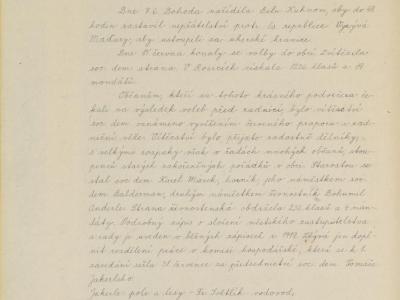 Dne 7. t. Dohoda nařídila Belu Kuhnovi, aby do 48
hodin zastavil nepřátelství proti čs republice. Vyzývá
Maďary, aby ustoupili za uherské hranice.
Dne 15 června konaly se volby do obcí. Zvítězila
soc. dem. strana. V Rosicích získala 1226 hlasů a 19
mandátů.
Občanům, kteří za tohoto krásného podvečera če-
kali na výsledek voleb před radnicí, bylo vítězství
soc dem oznámeno vyvěšením červeného praporu na rad-
niční věži. Vítězství bylo přijato radostně dělníky,
s velkými rozpaky však v řadách mnohých občanů, stou-
penců starých zakořeněných pořádků v obci. Starostou se
stal soc dem Karel Marek, horník, jeho náměstkem soc
dem Balderman, druhým náměstkem živnostník Bohumil
Anderle. Strana živnostenská obdržela 232 hlasů a 4 man-
dáty. Podrobný zápis o složení městského zastupitelstva
a rady je uveden v běžných zápisech r 1919. Zbývá jen dopl-
nit rozdělení práce v komisi hospodářské, která se k I.
zasedání sešla 31 července za předsednictví soc. dem. Tomáše
Jakerleho.
Jakerle pole a lesy - Fr. vodovod,